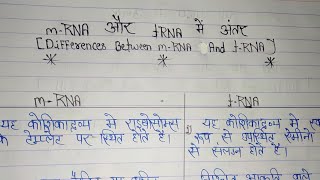 m-RNA और tRNA में अंतर
[Differences Between m-RNA And t-RNA]
m-RNA
यह कोशिकाद्रव्य में राइबोसोम्स
के टेम्पलेट पर स्थित होते हैं।
t-RNA
यह कोशिकाद्रव्य में
रूप से उपस्थित ऐमीनो
से संलग्न होते हैं।